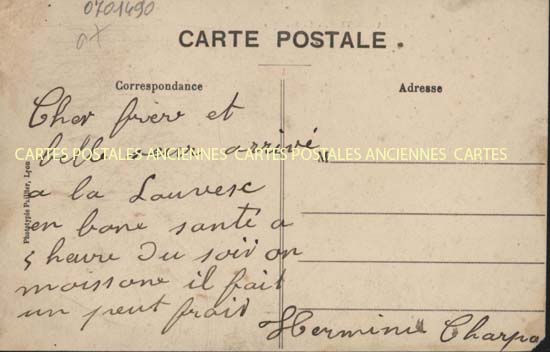 0701490
a+
CARTE POSTALE.
Correspondance
Adresse
Cher frère et
belle soeur arrivé
CARTES POSTALES ANCIENNES CARTES POSTALES ANCIENNES CARTES
a la Louvesc
en bone santé a
5 heure du soir on
moissone il fait
un peut fraid
Herminie Charpa
Phototypie Lyon